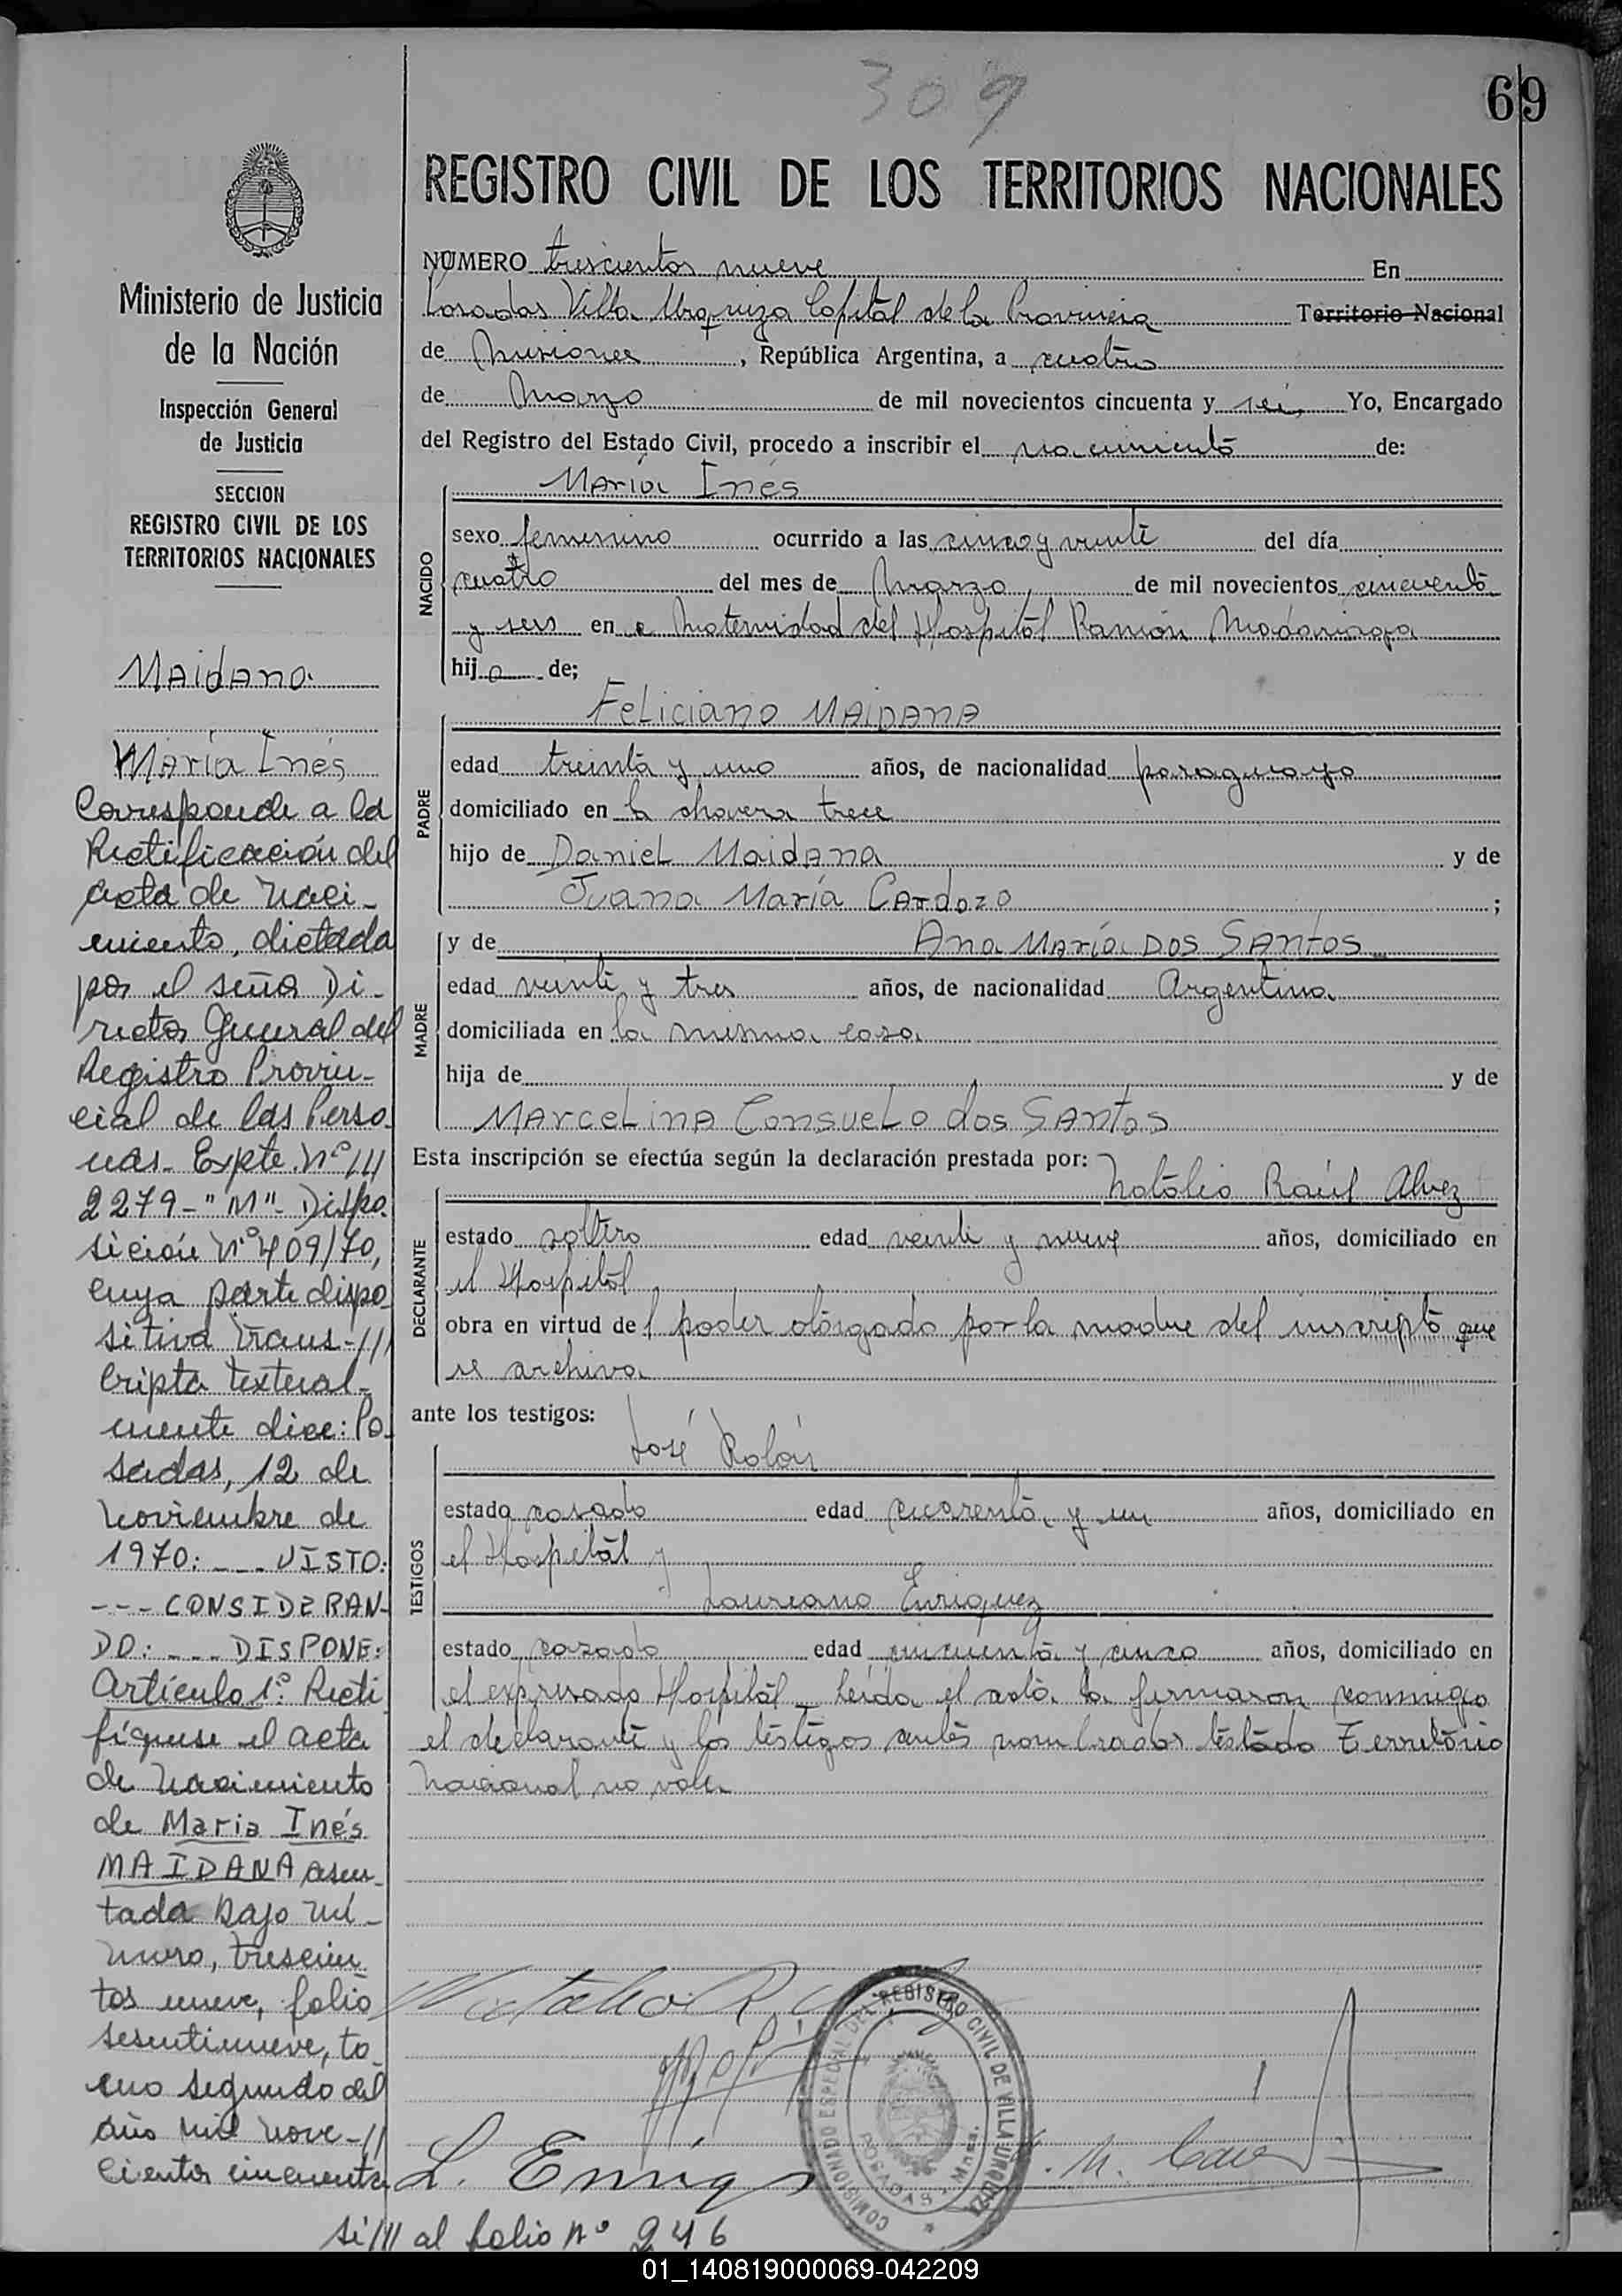 309
69
REGISTRO CIVIL DE LOS TERRITORIOS NACIONALES
Ministerio de Justicia
de la Nación
Inspección General
de Justicia
SECCION
REGISTRO CIVIL DE LOS
TERRITORIOS NACIONALES
Maidana
María Inés
Corresponde a la
Rectificación del
acta de naci-
miento, dictada
por el señor Di-
rector General del
Registro Provin-
cial de las Perso-
nas. Expte. Nº///
2279-"M"- Dispo-
sición Nº409/70,
cuya parte dispo-
sitiva trans-///
cripta textual-
mente dice: Po-
sadas, 12 de
noviembre de
1970: --- VISTO:
--- CONSIDERAN-
DO: --- DISPONE:
Artículo 1º: Recti-
fíquese el acta
de nacimiento
de Maria Inés
MAIDANA asen-
tada bajo nú-
mero, trescien-
tos nueve, folio
sesentinueve, to-
mo segundo del
año mil nove-//
cientos cincuenta
si/// al folio Nº 246
NUMERO trescientos nueve En
Posadas Villa Urquiza Capital de la Provincia Territorio Nacional
de Misiones, República Argentina, a cuatro
de Marzo de mil novecientos cincuenta y seis Yo, Encargado
del Registro del Estado Civil, procedo a inscribir el nacimiento de:
NACIDO
María Inés
sexo femenino ocurrido a las cinco y veinte del día
cuatro del mes de Marzo de mil novecientos cincuenta
y seis en a Maternidad del Hospital Ramón Madariaga
hija de;
PADRE
Feliciano MAIDANA
edad treinta y uno años, de nacionalidad paraguayo
domiciliado en la chacra trece
hijo de Daniel Maidana y de
Juana María Cardozo ;
MADRE
y de Ana María DOS SANTOS
edad veinte y tres años, de nacionalidad Argentina
domiciliada en la misma casa
hija de y de
Marcelina Consuelo dos Santos
Esta inscripción se efectúa según la declaración prestada por:
DECLARANTE
Natalio Raúl Alvez
estado soltero edad veinte y nueve años, domiciliado en
el Hospital
obra en virtud del poder otorgado por la madre del inscripto que
se archiva
ante los testigos:
TESTIGOS
José Rolón
estado casado edad cuarenta y un años, domiciliado en
el Hospital y
Laureano Enriquez
estado casado edad cincuenta y cinco años, domiciliado en
el expresado Hospital - Leída el acta la firmaron conmigo
el declarante y los testigos antes nombrados testado Territorio
Nacional no vale
Natalio R.
L. Enriq
COMISIONADO ESPECIAL DEL REGISTRO CIVIL DE VILLA URQUIZA
POSADAS - Mnes.
01_140819000069-042209